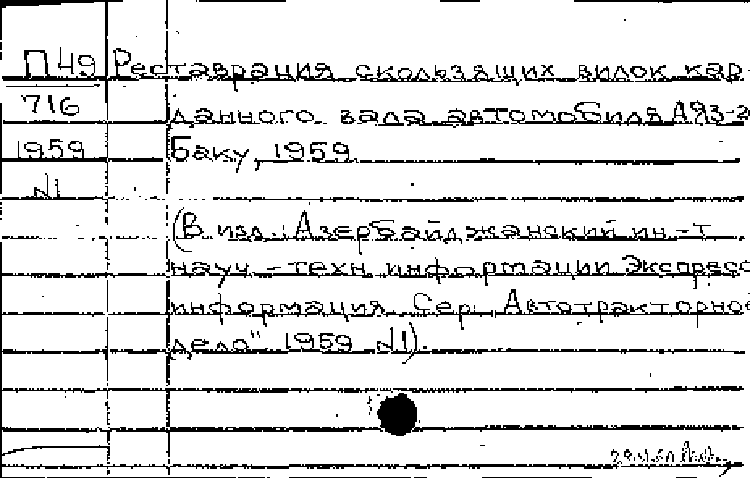 П49 Реставрация скользящих вилок кар-
716 данного вала автомобиля
1959 Баку, 1959
N1
(В изд.: Азербайджанский ин-т
науч-техн информации Экспресс
информация. Сер „Автотракторное
дело" 1959 N1).